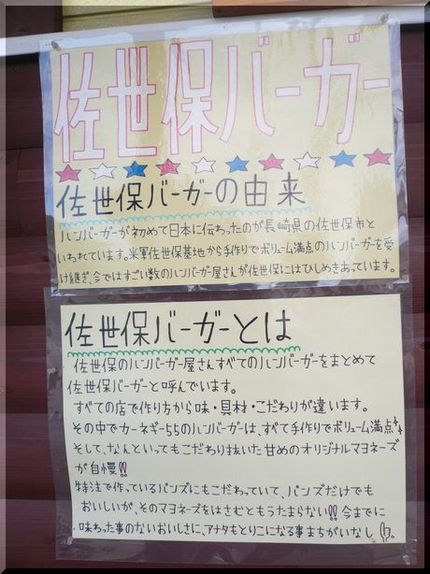 佐世保バーガー
佐世保バーガーの由来
ハンバーガーが初めて日本に伝わったのが長崎県の佐世保市と
いわれています。米軍佐世保基地から手作りでボリューム満点のハンバーガーを受
け継ぎ、今ではすごい数のハンバーガー屋さんが佐世保にはひしめきあっています。
佐世保バーガーとは
佐世保のハンバーガー屋さんすべてのハンバーガーをまとめて
佐世保バーガーと呼んでいます。
すべての店で作り方から味・具材・こだわりが違います。
その中でカーネギー55のハンバーガーは、すべて手作りでボリューム満点
そして、なんといってもこだわり抜いた甘めのオリジナルマヨネーズ
が自慢!!
特注で作っているバンズにもこだわっていて、バンズだけでも
おいしいが、そのマヨネーズをはさむともうたまらない!!今までに
味わった事のないおいしさに、アナタもとりこになる事まちがいなし